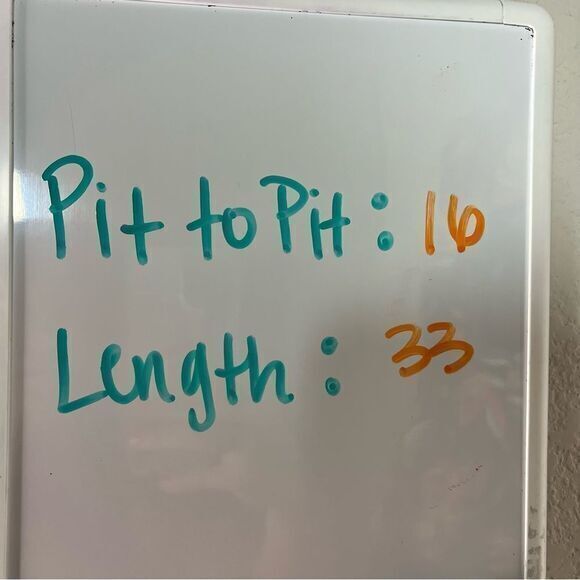 Pit to Pit: 16
Length: 33